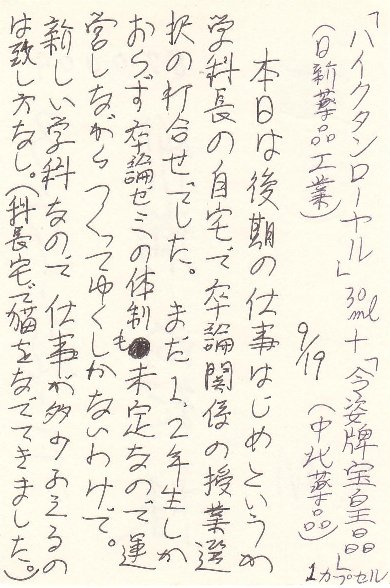 「ハイクタンローヤル」30ml+「令姿牌宝皇晶」1カプセル
(日新薬品工業) 9/19 (中北薬品)
本日は後期の仕事はじめというか
学科長の自宅で卒論関係の授業選
択の打合せでした。まだ1、2年生しか
おらず卒論ゼミの体制も未定なので運
営しながらつくってゆくしかないわけで。
新しい学科なので仕事が多少ふえるの
は致し方なし。(科長宅で猫をなでてきました。)